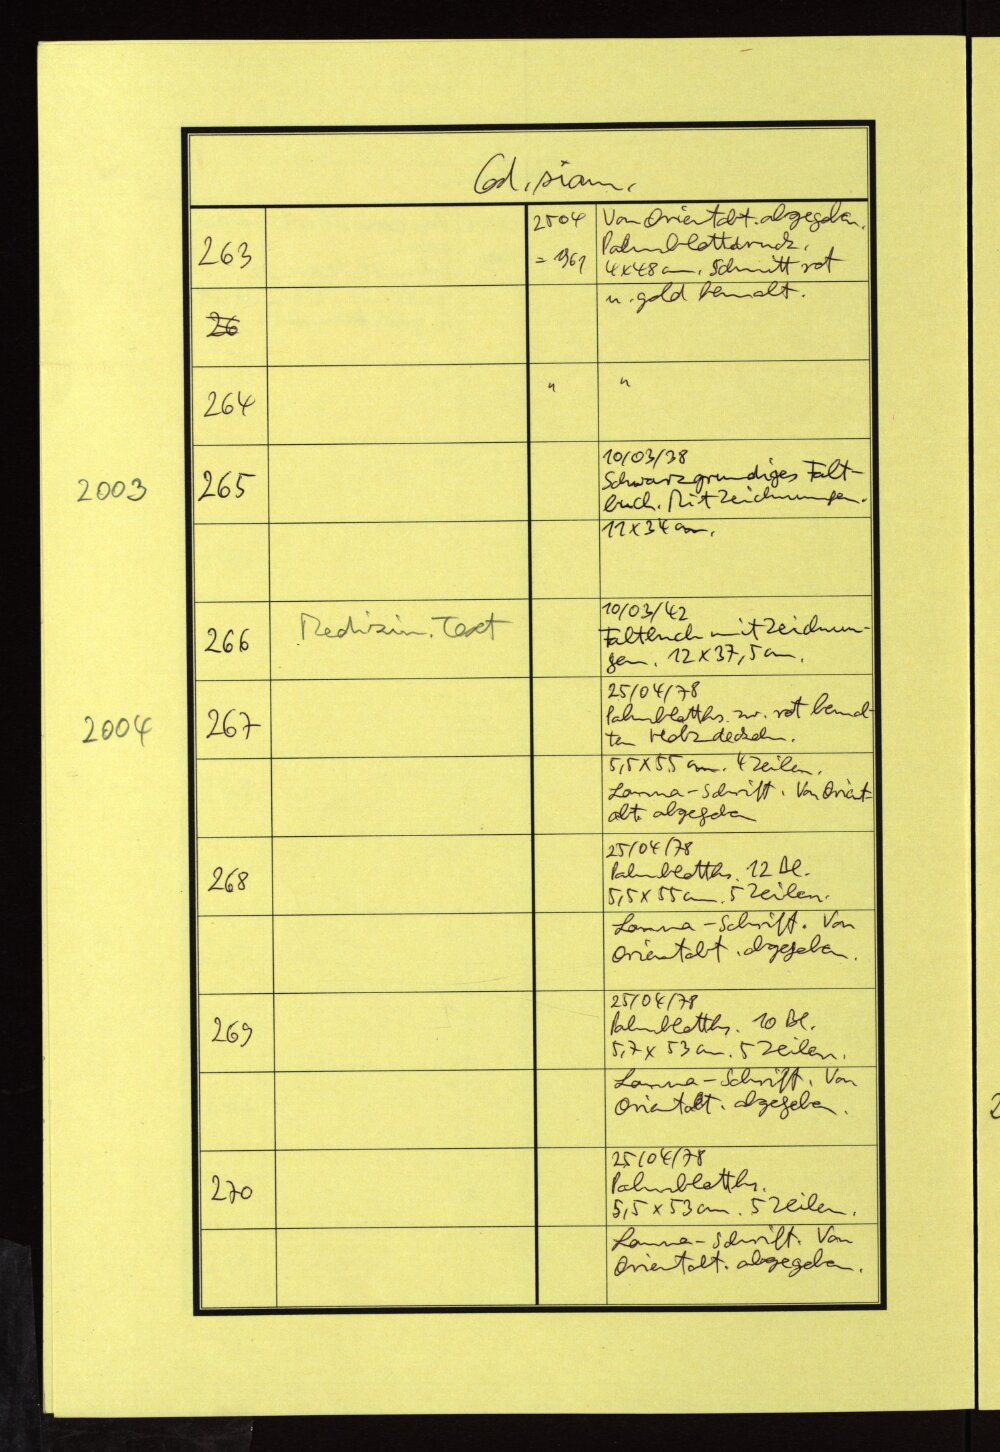 Cod. siam.
263 2504 Von Orientabt. abgegeben.
Palmblattdruck.
= 1961 4x48 cm. Schnitt rot
u. gold bemalt.
26
264 " "
10/03/38
2003 265 Schwarzgrundiges Falt-
buch. Mit Zeichnungen.
11x34 cm.
10/03/42
266 Medizin. Text Faltbuch mit Zeichnun-
gen. 12x37,5 cm.
25/04/78
2004 267 Palmblatths. zw. rot bemal-
ten Holzdeckeln.
5,5x55 cm. 4 Zeilen.
Lanna-Schrift. Von Orient-
abt. abgegeben
25/04/78
268 Palmblatths. 12 Bl.
5,5x55 cm. 5 Zeilen.
Lanna-Schrift. Von
Orientabt. abgegeben.
25/04/78
269 Palmblatths. 10 Bl.
5,7x53 cm. 5 Zeilen.
Lanna-Schrift. Von
Orientabt. abgegeben.
25/04/78
270 Palmblatths.
5,5x53 cm. 5 Zeilen.
Lanna-Schrift. Von
Orientabt. abgegeben.
2